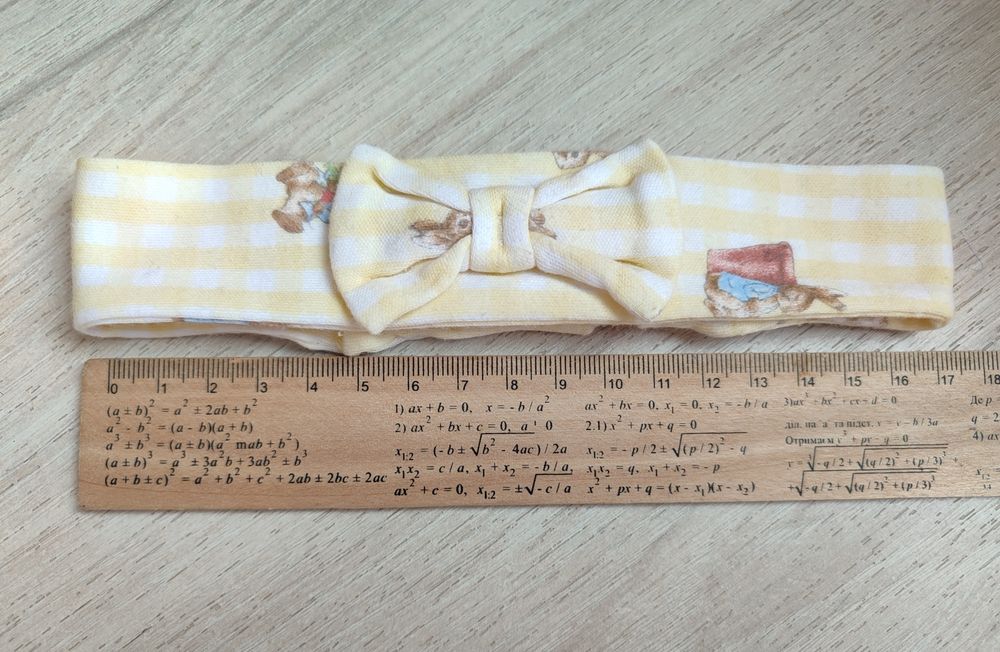 0 1 2 3 4 5 6 7 8 9 10 11 12 13 14 15 16 17 18
(a ± b)² = a² ± 2ab + b²
a² - b² = (a - b)(a + b)
a³ ± b³ = (a ± b)(a² mab + b²)
(a ± b)³ = a³ ± 3a²b + 3ab² ± b³
(a + b ± c)² = a² + b² + c² + 2ab ± 2bc ± 2ac
1) ax + b = 0, x = - b / a
2) ax² + bx + c = 0, a ' 0
x1:2 = (- b ± √b² - 4ac) / 2a
x1x2 = c / a, x1 + x2 = - b / a,
ax² + c = 0, x1:2 = ±√- c / a
ax² + bx = 0, x1 = 0, x2 = - b / a
2.1) x² + px + q = 0
x1:2 = - p / 2 ± √(p / 2)² - q
x1x2 = q, x1 + x2 = - p
x² + px + q = (x - x1)(x - x2)
3)ax³ + bx² + cx + d = 0
x = y - b / 3a
Отримаєм x³ + px + q = 0
x = ³√- q / 2 + √(q / 2)² + (p / 3)³ +
+ ³√- q / 2 + √(q / 2)² + (p / 3)³
Де p
q = 2
4) ax
x1:2